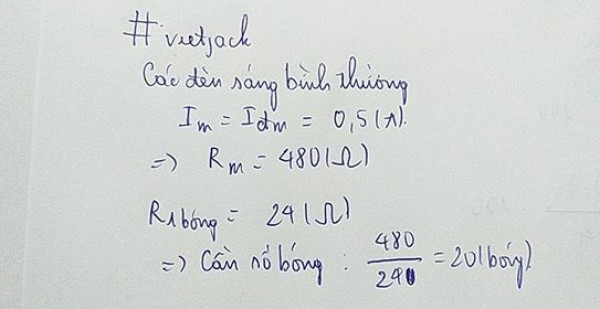 # vietjack
Các đèn sáng bình thường
Im = Iđm = 0,5 (A).
=> Rm = 480 (Ω)
R1bóng = 24 (Ω)
=> Cần số bóng : 480/24 = 20 (bóng)